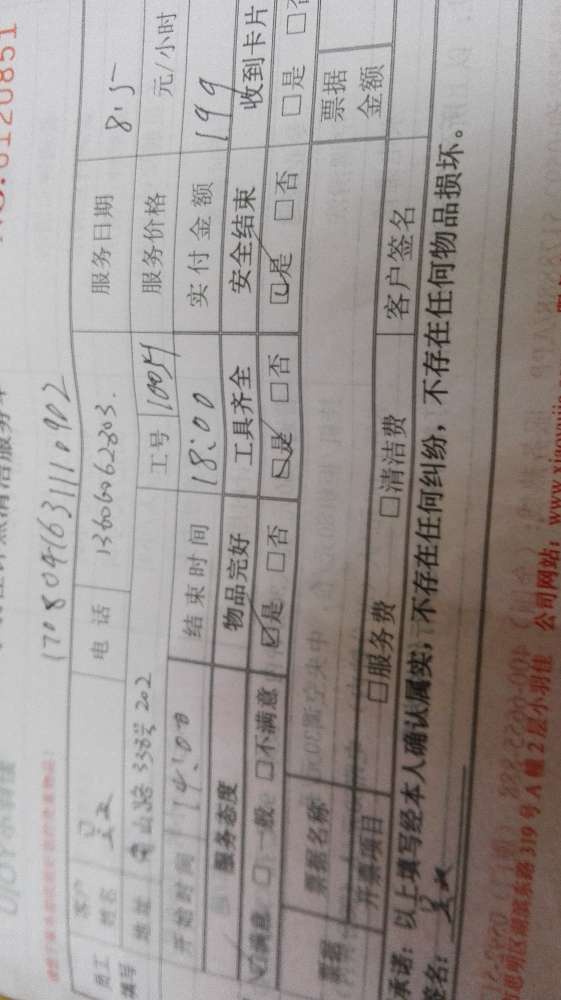 NO.0120851
170804163111092
员工填写 客户姓名 电话 13606062803. 服务日期 8.15
地址 338号202 工号 10051 服务价格 元/小时
开始时间 14:00 结束时间 18:00 实付金额 199
服务态度 物品完好 工具齐全 安全结束 收到卡片
☑满意 □一般 □不满意 ☑是 □否 ☑是 □否 ☑是 □否 □是
票据 票据名称 票据金额
开票项目 □服务费 □清洁费 客户签名
承诺：以上填写经本人确认属实，不存在任何纠纷，不存在任何物品损坏。
签名：
思明区湖滨东路319号A幢2层小羽佳 公司网站：www.xiaoyujia